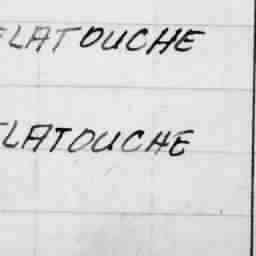 ELATOUCHE
ELATOUCHE